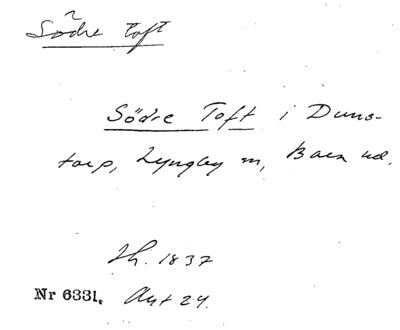 Södre Toft
Södre Toft i Duns-
torp, Lyngby m, Bara hd.
Th. 1837
Nr 6331. Akt 24.